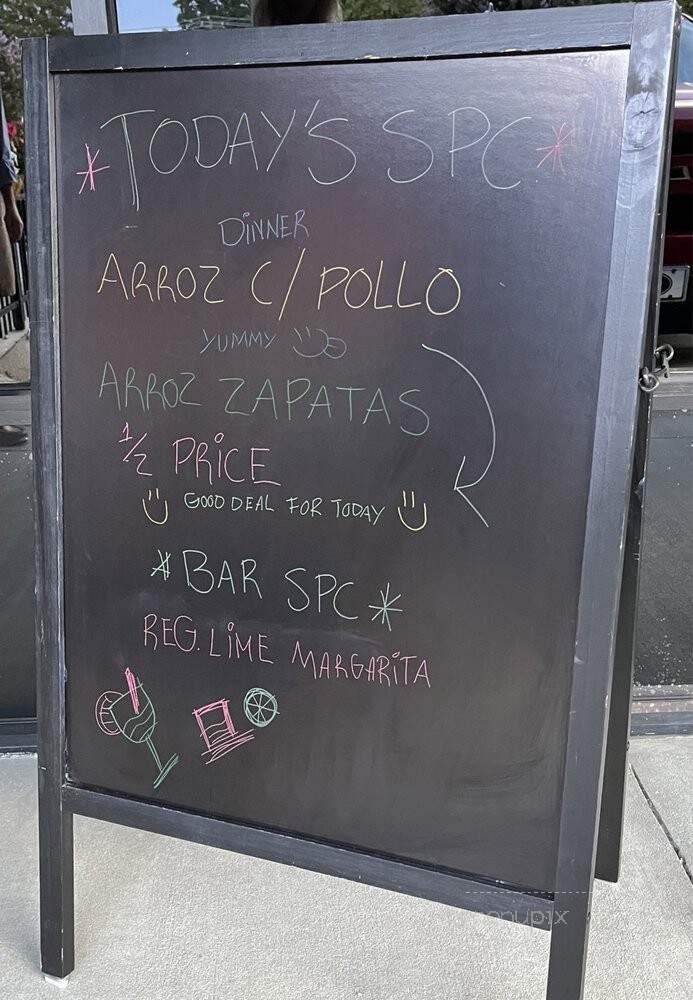 *TODAY'S SPC*
DINNER
ARROZ C/ POLLO
YUMMY
ARROZ ZAPATAS
1/2 PRICE
GOOD DEAL FOR TODAY
*BAR SPC*
REG. LIME MARGARITA